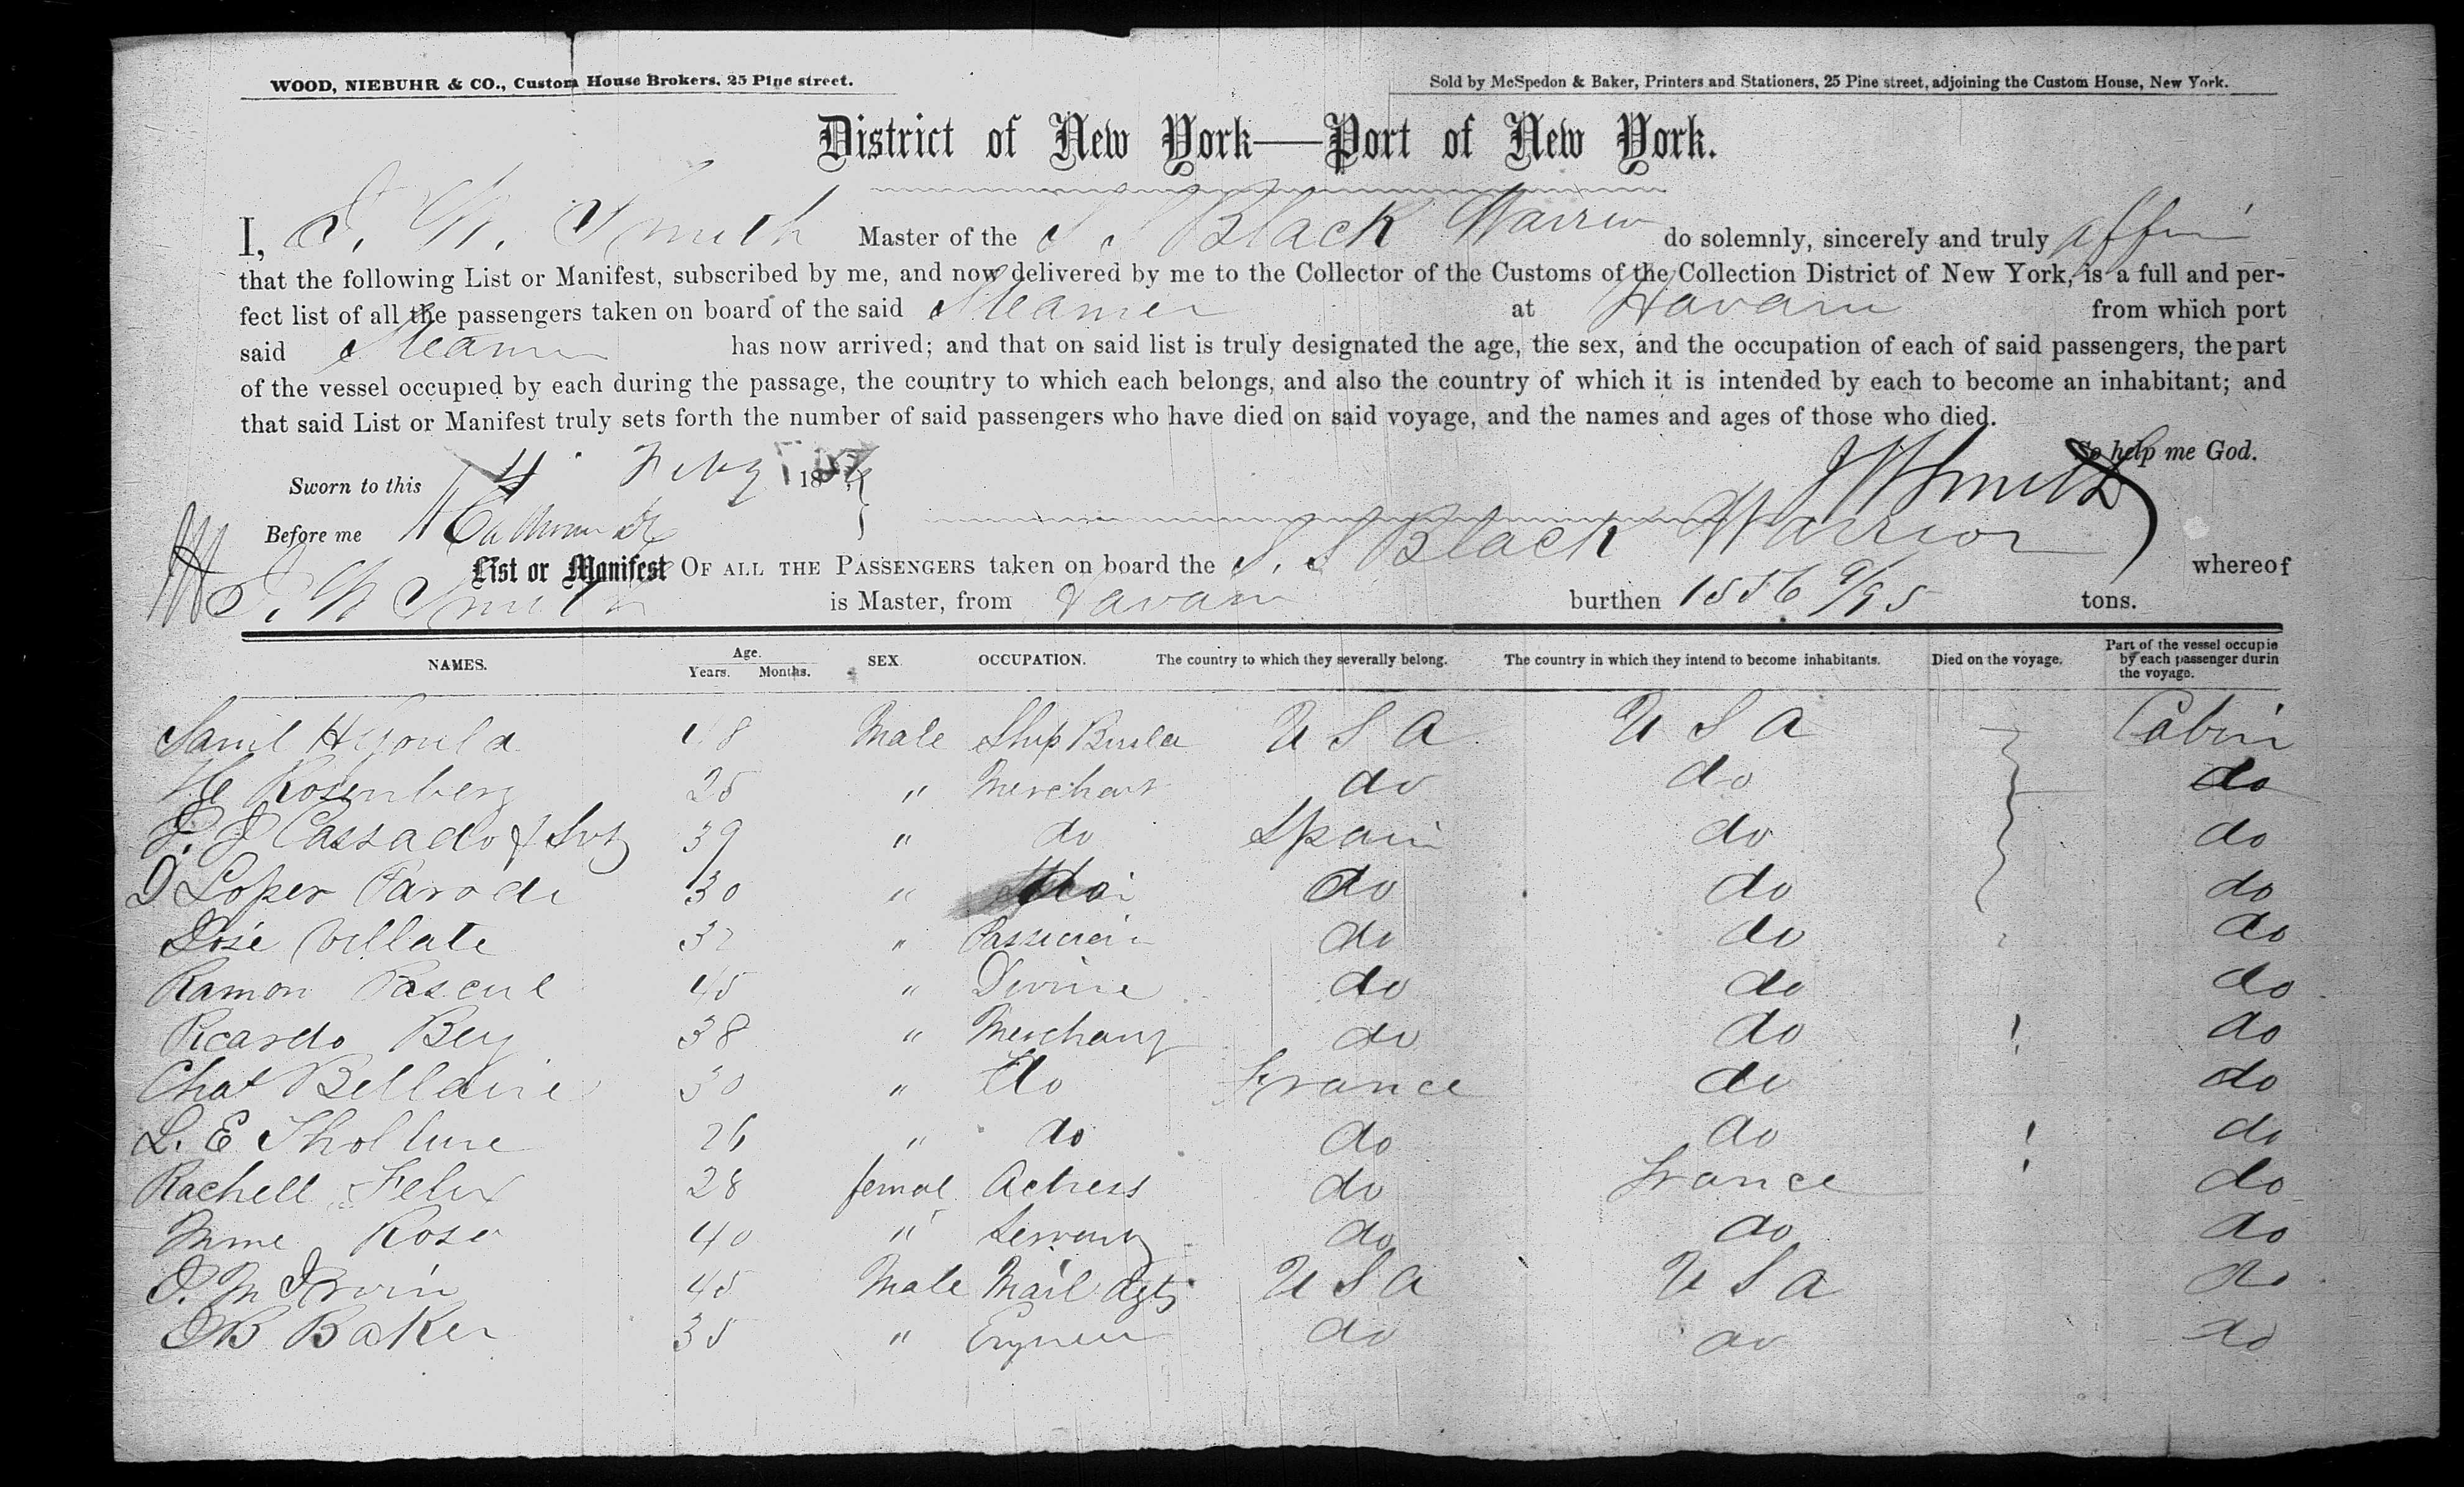 WOOD, NIEBUHR & CO., Custom House Brokers, 25 Pine street.
Sold by McSpedon & Baker, Printers and Stationers, 25 Pine street, adjoining the Custom House, New York.
District of New York—Port of New York.
I, J. W. Smith Master of the S S Black Warrior do solemnly, sincerely and truly affirm
that the following List or Manifest, subscribed by me, and now delivered by me to the Collector of the Customs of the Collection District of New York, is a full and per-
fect list of all the passengers taken on board of the said Steamer at Havana from which port
said Steamer has now arrived; and that on said list is truly designated the age, the sex, and the occupation of each of said passengers, the part
of the vessel occupied by each during the passage, the country to which each belongs, and also the country of which it is intended by each to become an inhabitant; and
that said List or Manifest truly sets forth the number of said passengers who have died on said voyage, and the names and ages of those who died.
So help me God.
Sworn to this 4 Feby 18
J W Smith
Before me
List or Manifest OF ALL THE PASSENGERS taken on board the S. S Black Warrior whereof
J. W Smith is Master, from Havana burthen 1556 9/95 tons.
NAMES. Age. Years. Months. SEX. OCCUPATION. The country to which they severally belong. The country in which they intend to become inhabitants. Died on the voyage. Part of the vessel occupie by each passenger durin the voyage.
Saml H Gould 48 Male Ship U S A U S A Cabin
Rosenberg 25 " Merchant do do do
J. J Cassado & Svt 39 " do Spain do do
D Lopez Parodi 30 " do do do do
José Villate 32 " do do do
Ramon Pascul 45 " Divine do do do
Ricardo Bey 38 " Merchant do do do
Chat Bellaire 30 " do France do do
L. E 26 " do do do do
Rachell Felix 28 femal Actress do France do
Mme Rose 40 " Servant do do do
J. M Irvin 45 Male Mail Agt U S A U S A do
J B Baker 35 " do do do